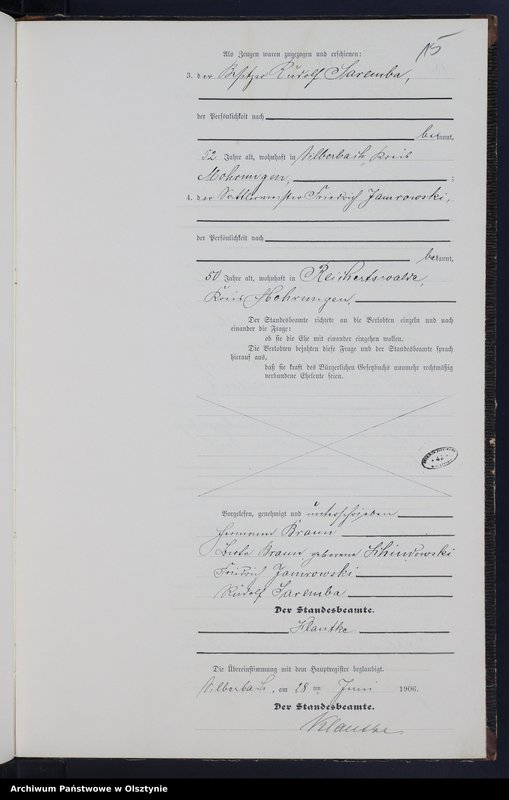 15
Als Zeugen waren zugezogen und erschienen:
3. der Besitzer Rudolf Saremba,
der Persönlichkeit nach
bekannt,
52 Jahre alt, wohnhaft in Silberbach, Kreis
Mohrungen, ;
4. der Sattlermeister Friedrich Jamrowski,
der Persönlichkeit nach
bekannt,
50 Jahre alt, wohnhaft in Reichertswalde,
Kreis Mohrungen
Der Standesbeamte richtete an die Verlobten einzeln und nach
einander die Frage:
ob sie die Ehe mit einander eingehen wollen.
Die Verlobten bejahten diese Frage und der Standesbeamte sprach
hierauf aus,
daß sie kraft des Bürgerlichen Gesetzbuchs nunmehr rechtmäßig
verbundene Eheleute seien.
Vorgelesen, genehmigt und unterschrieben
Hermann Braun
Berta Braun geborene
Friedrich Jamrowski
Rudolf Saremba
Der Standesbeamte.
Klautke
Die Übereinstimmung mit dem Hauptregister beglaubigt.
Silberbach, am 28 ten Juni 1906.
Der Standesbeamte.
Klautke
Archiwum Państwowe w Olsztynie